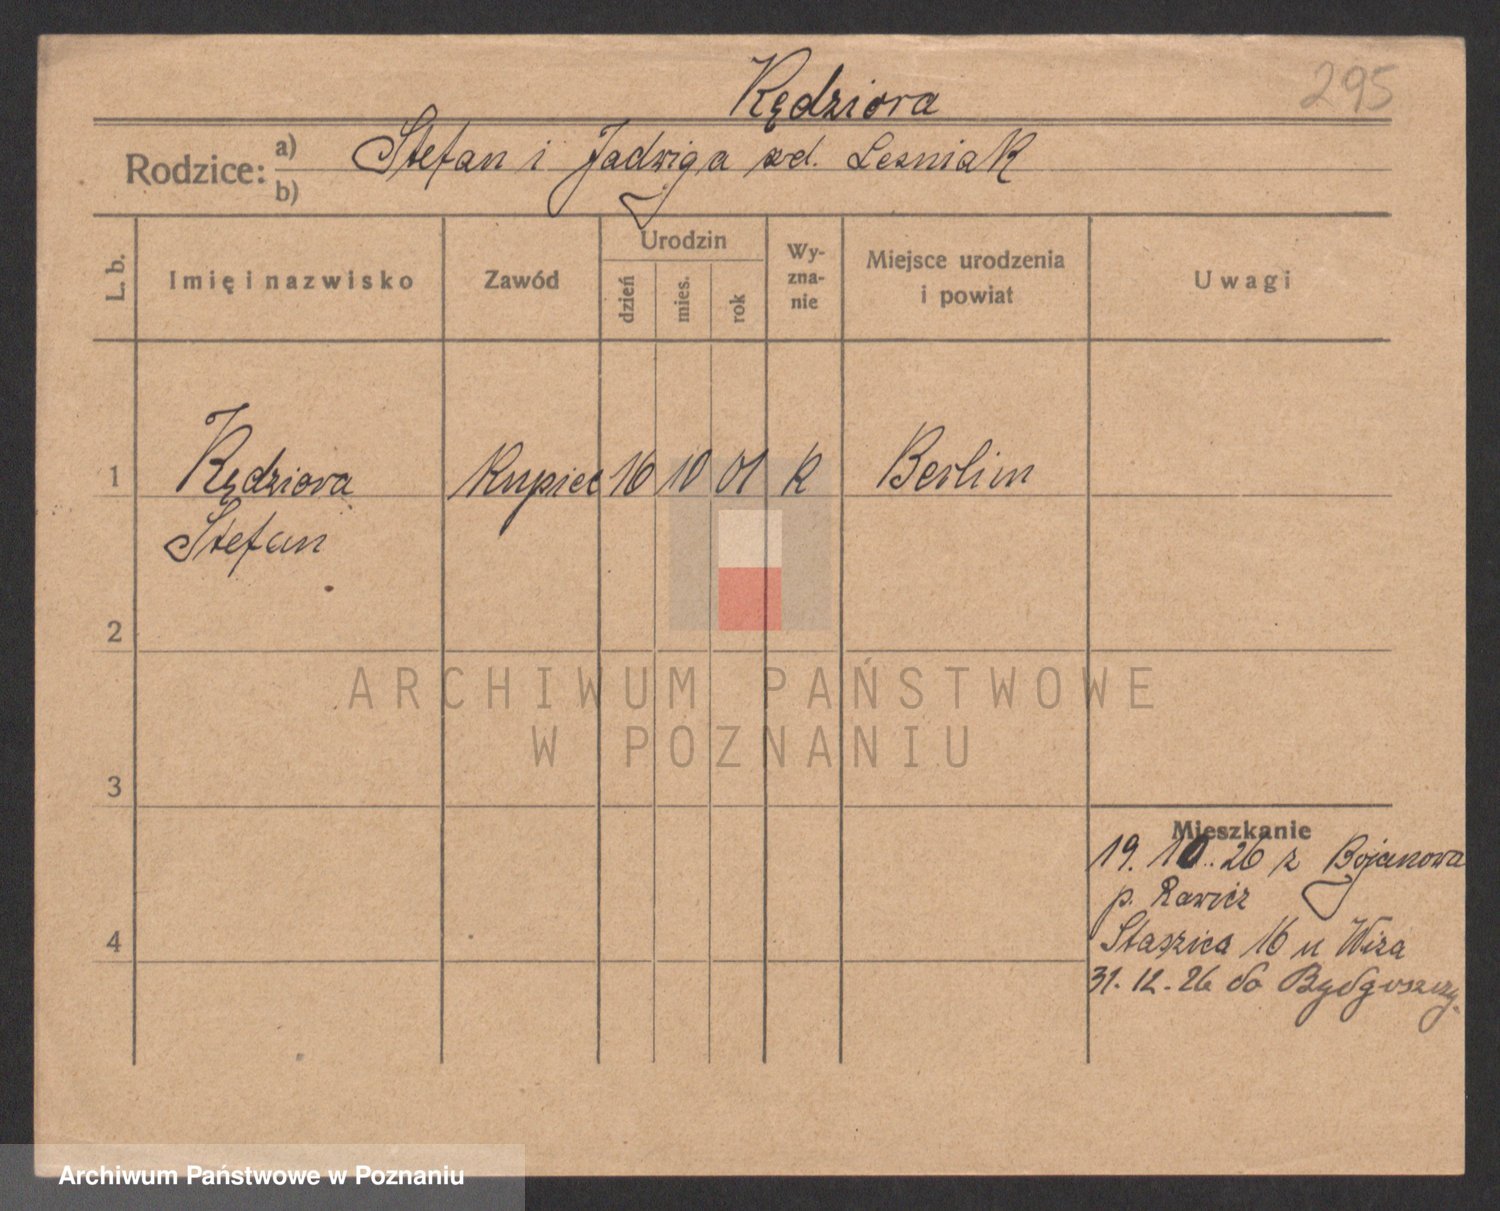 Kędziora
295
Rodzice: a) Stefan i Jadwiga zd. Lesniak
b)
L. b.
Imię i nazwisko
Zawód
Urodzin
dzień
mies.
rok
Wy-
zna-
nie
Miejsce urodzenia
i powiat
Uwagi
1 Kędziora Kupiec 16 10 01 K Berlin
Stefan
2
3
4
Mieszkanie
19. 10. 26 z Bojanowa
p. Rawicz
Staszica 16 u Wiza
31. 12. 26 do Bydgoszczy
ARCHIWUM PAŃSTWOWE
W POZNANIU
Archiwum Państwowe w Poznaniu